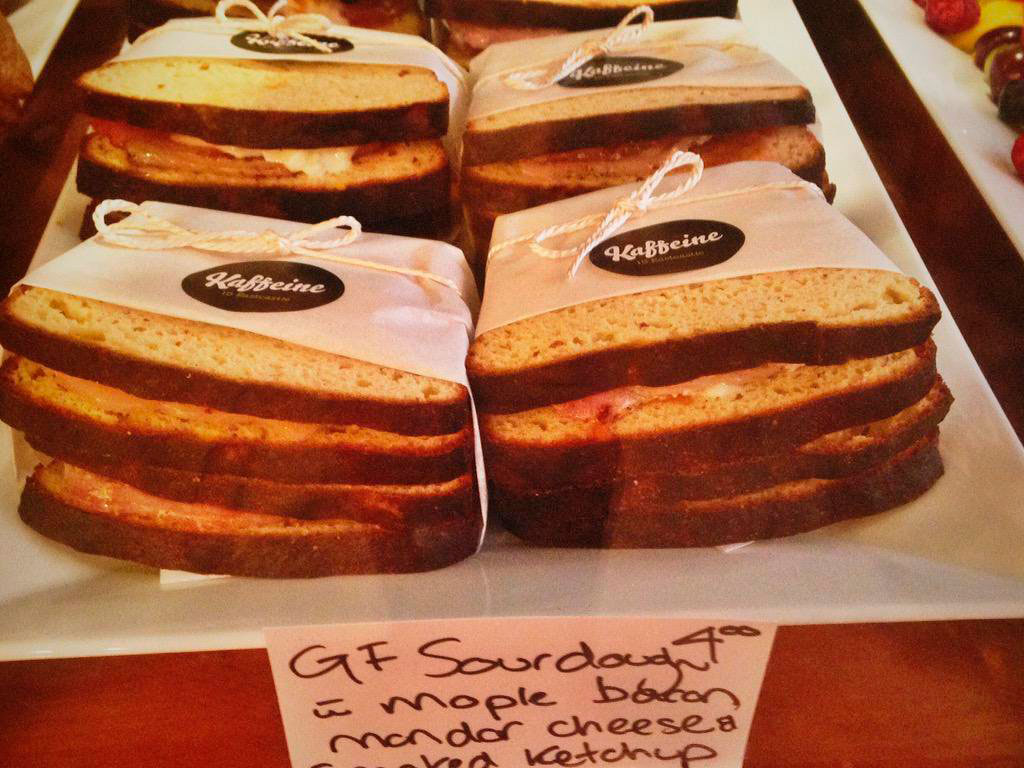 Kaffeine
Kaffeine
Kaffeine
Kaffeine
GF Sourdough 4.00
c̄ maple bacon,
mandor cheese &
Smoked Ketchup